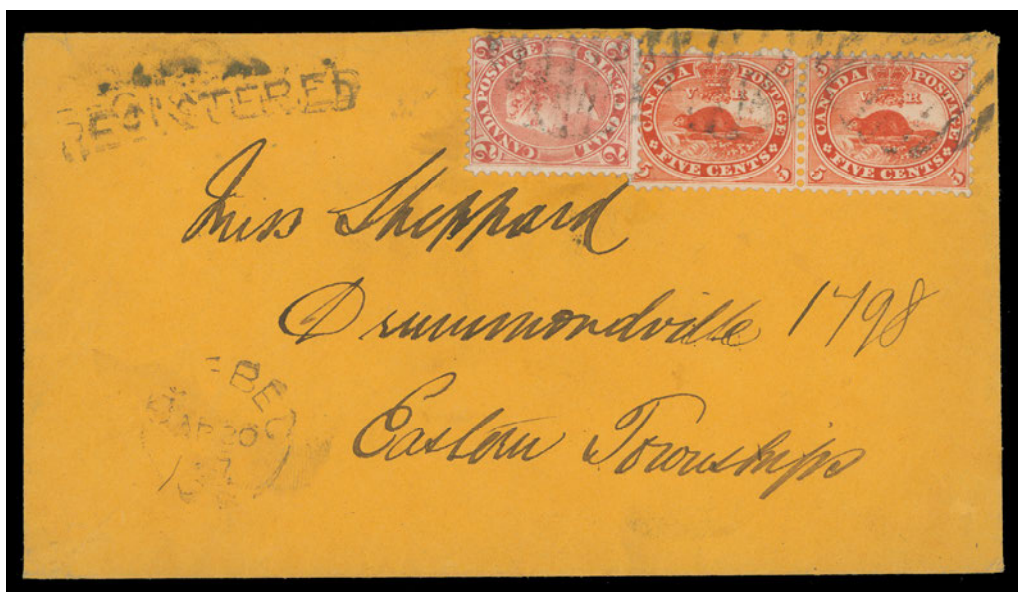 REGISTERED
CANADA POSTAGE
TWO CENTS
2 2 2 2
CANADA POSTAGE
V R
FIVE CENTS
5 5 5 5
CANADA POSTAGE
V R
FIVE CENTS
5 5 5 5
Miss Sheppard
Drummondville 1798
Eastern Townships
BEC